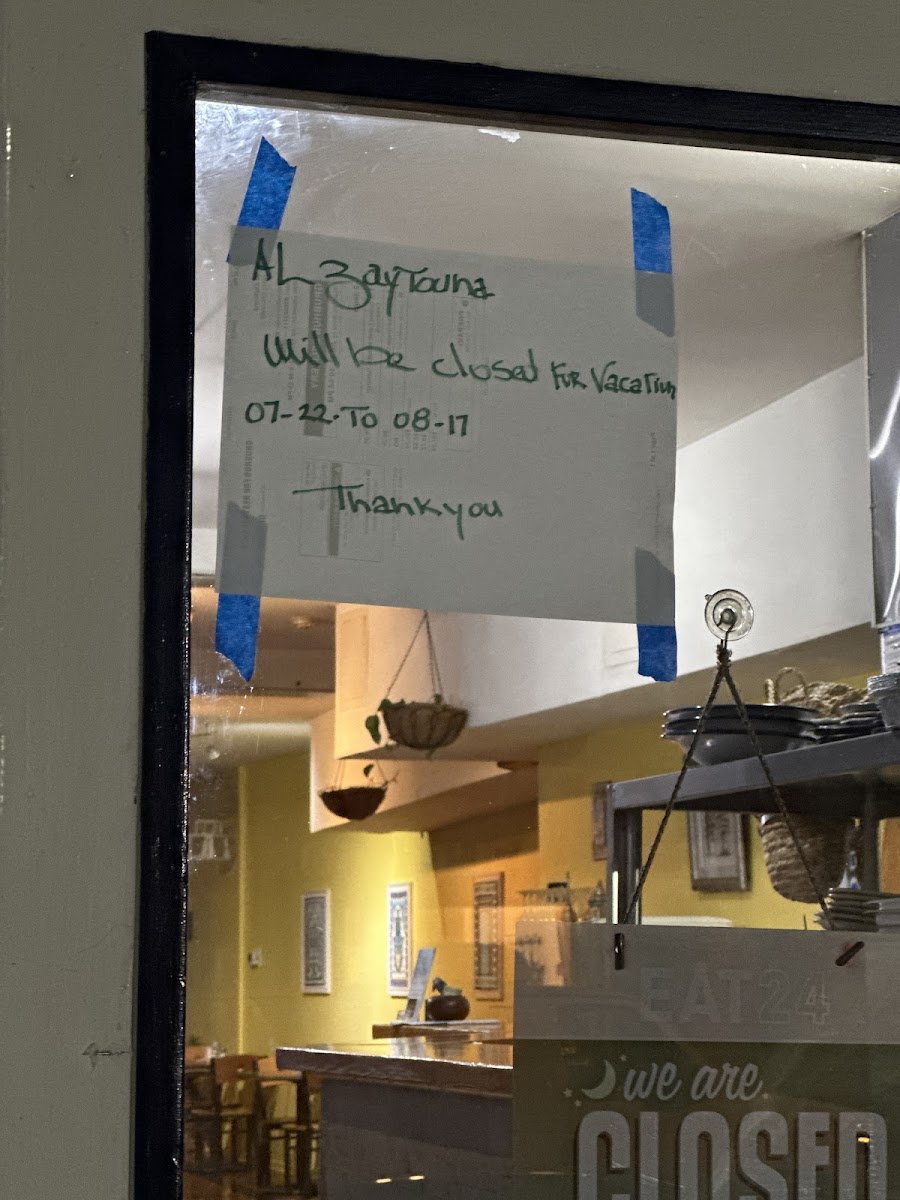 AL ZayTouna
will be closed For Vacation
07-22-To 08-17
Thank you
EAT24
we are
CLOSED